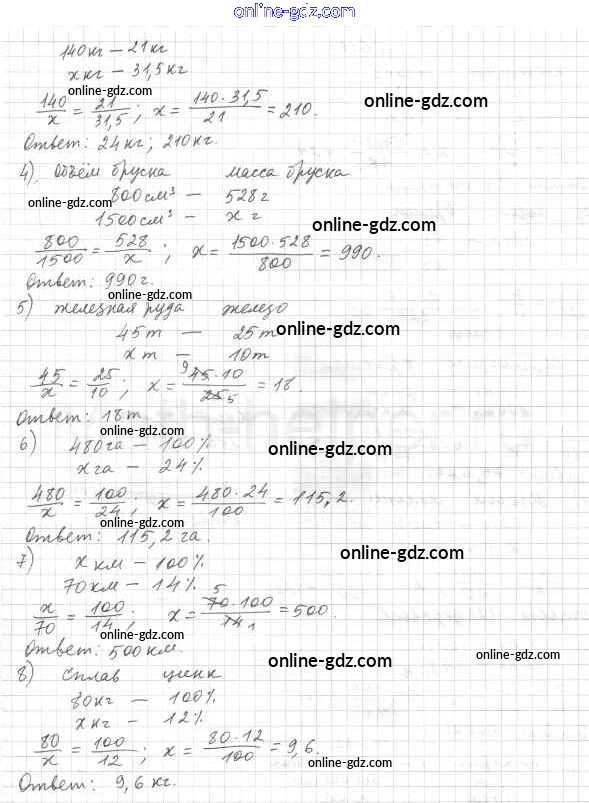 online-gdz.com
140 кг — 21 кг
x кг — 31,5 кг
online-gdz.com
140/x = 21/31,5; x = 140·31,5/21 = 210.
online-gdz.com
Ответ: 24 кг; 210 кг.
4) Объём бруска масса бруска
800 см³ — 528 г
online-gdz.com
1500 см³ — x г
online-gdz.com
800/1500 = 528/x; x = 1500·528/800 = 990.
Ответ: 990 г.
online-gdz.com
5) железная руда железо
45 т — 25 т
online-gdz.com
x т — 10 т
45/x = 25/10; x = 9 45·10/25 5 = 18.
online-gdz.com
Ответ: 18 т.
6) 480 га — 100%
online-gdz.com
x га — 24%
480/x = 100/24; x = 480·24/100 = 115,2.
online-gdz.com
Ответ: 115,2 га.
7) x км — 100%
online-gdz.com
70 км — 14%
x/70 = 100/14; x = 5 70·100/14 1 = 500.
online-gdz.com
Ответ: 500 км.
online-gdz.com
online-gdz.com
8) сплав цинк
80 кг — 100%
online-gdz.com
x кг — 12%
80/x = 100/12; x = 80·12/100 = 9,6.
online-gdz.com
online-gdz.com
Ответ: 9,6 кг.